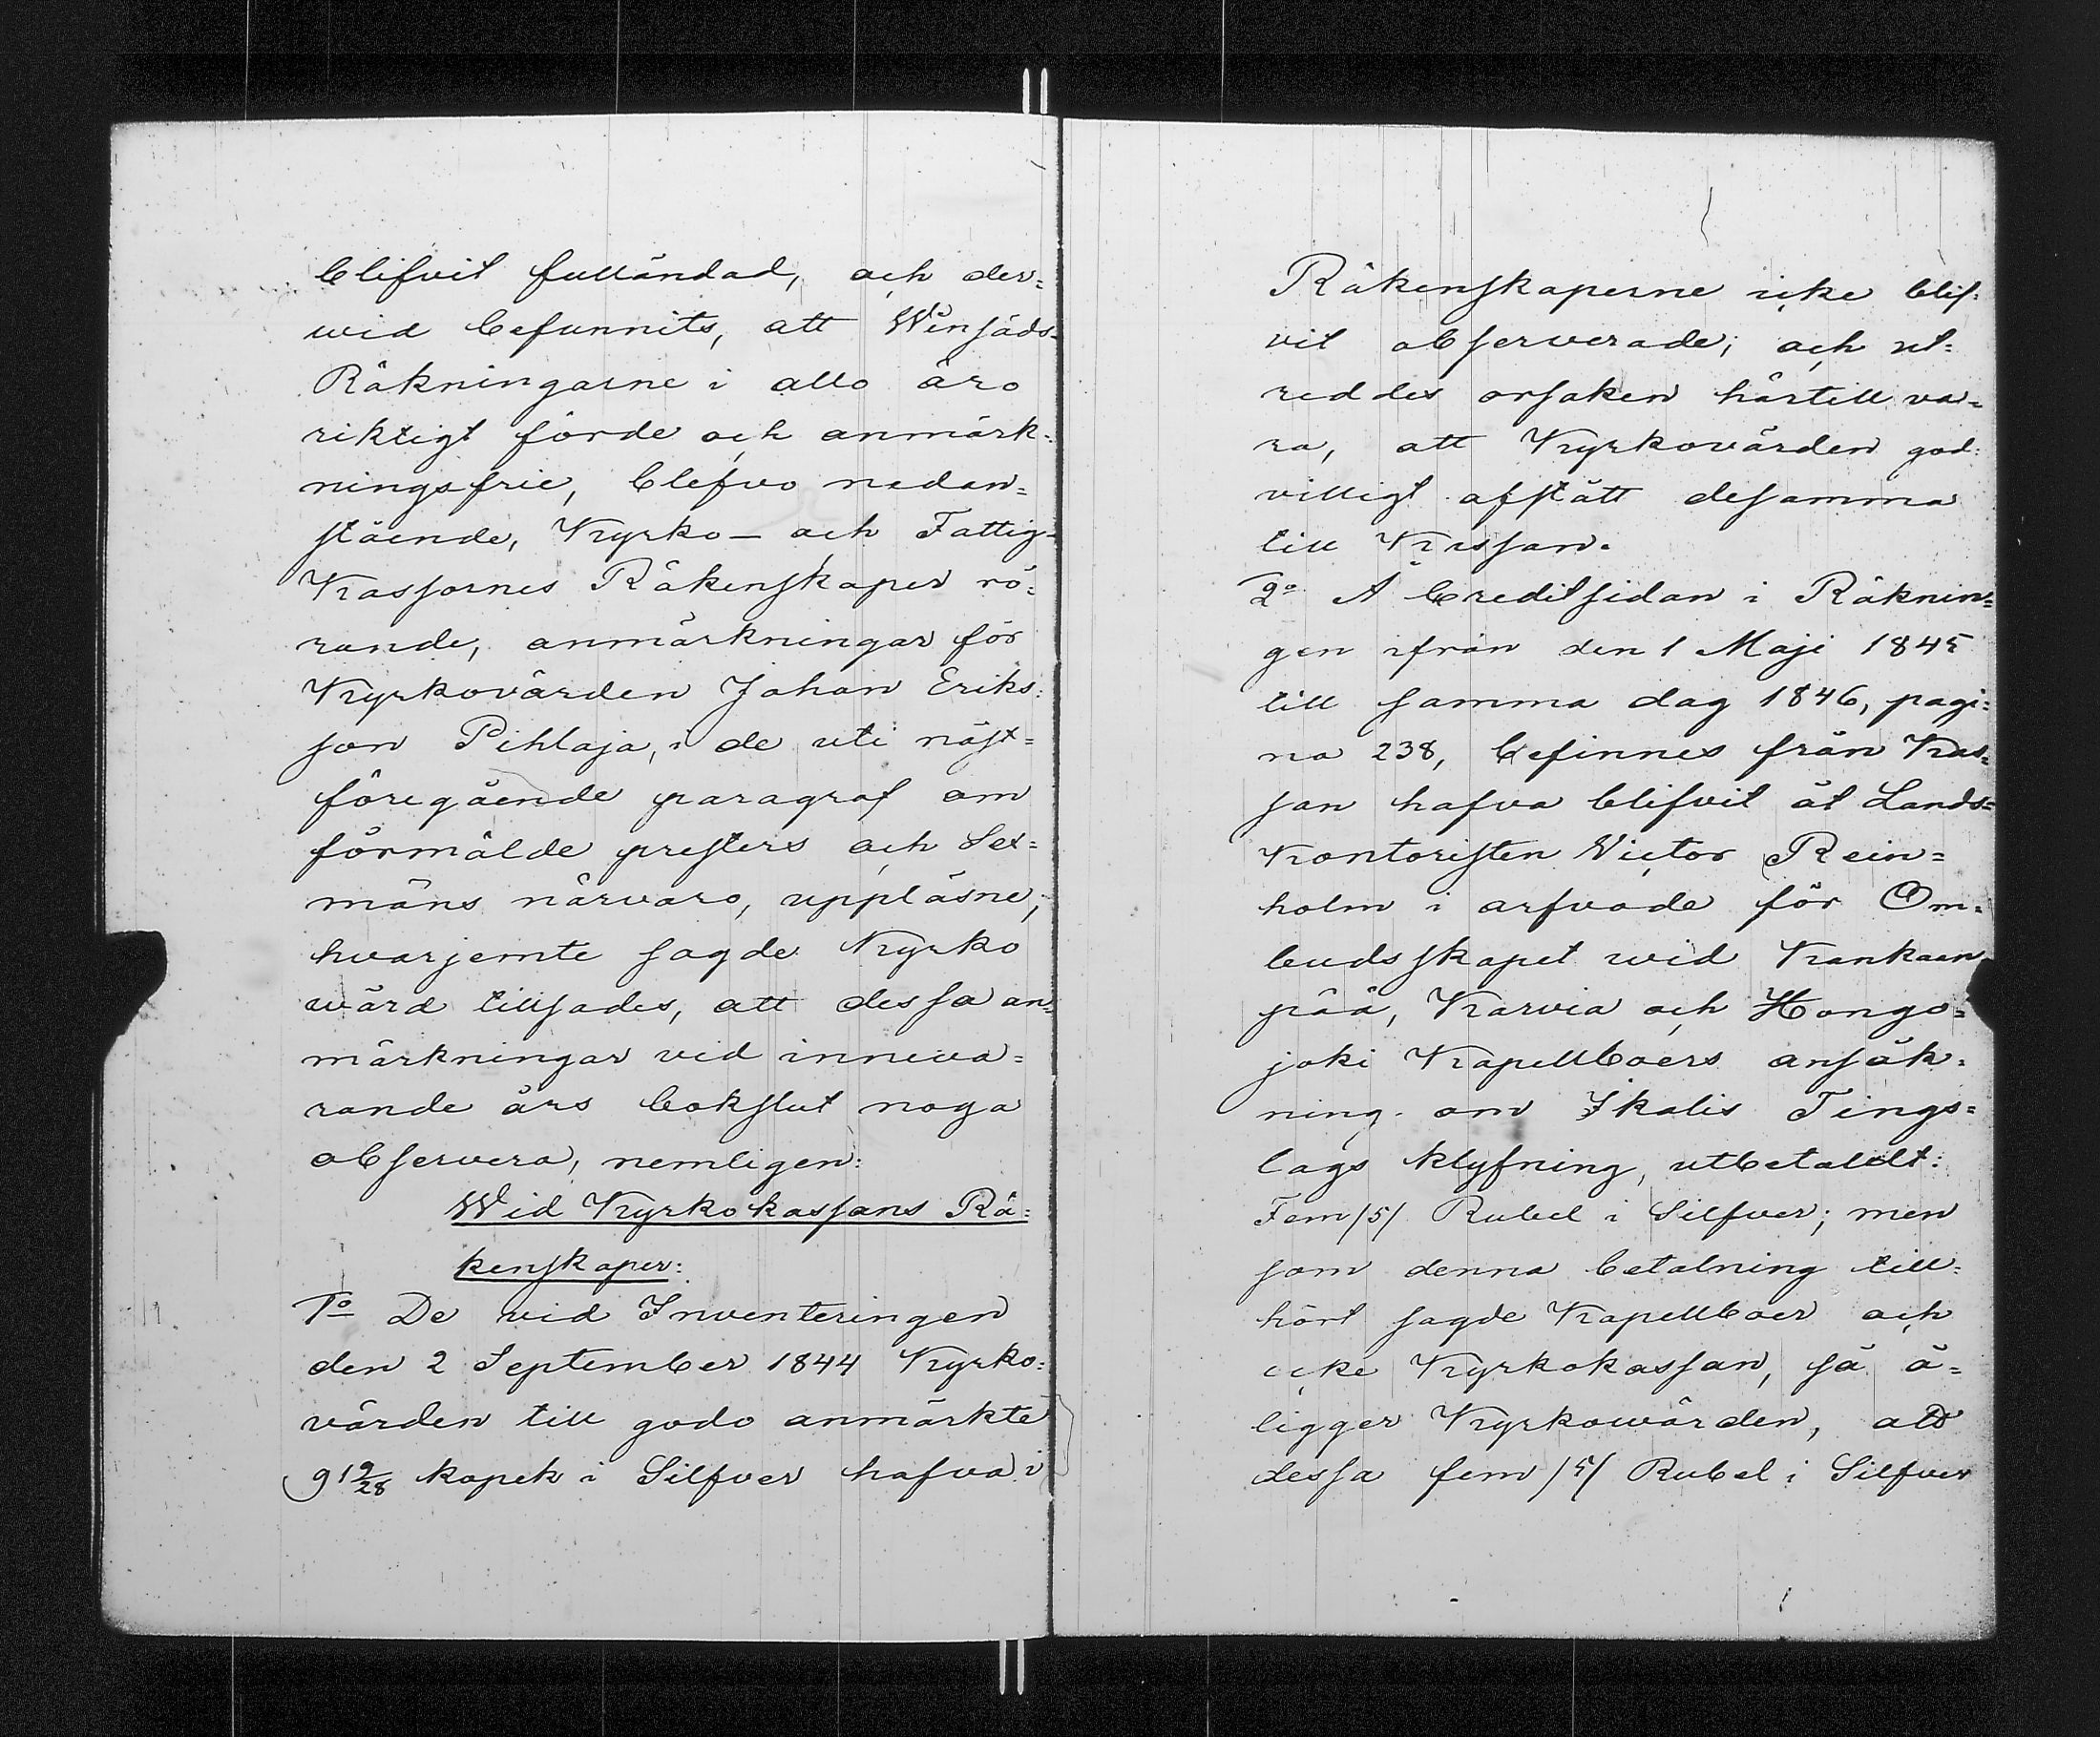 blifvit fulländad, och der=
wid befunnits, att Winsäds-
Räkningarne i allo äro
riktigt förde och anmärk=
ningsfrie, blefvo nedan=
stående, Kyrko- och Fattig-
Kassornes Räkenskaper rö=
rande, anmärkningar för
Kyrkovärden Johan Eriks=
son Pihlaja, i de uti näst=
föregående paragraf om
förmälde presters och Sex=
mäns närvaro, uppläsne;
hvarjemte sagde Kyrko
wärd tillsades, att dessa an=
märkningar vid inneva=
rande års bokslut noga
observera, nemligen:
Wid Kyrkokassans Rä=
kenskaper:
1o De vid Inventeringen
den 2 September 1844 Kyrko=
värden till godo anmärkte
91 9/28 kopek i Silfver hafva i
Räkenskaperne icke blif=
vit observerade; och ut=
reddes orsaken härtill va=
ra, att Kyrkovärden god=
villigt afstått desamma
till Kassan.
2o Å Creditsidan i Räknin=
gen ifrån den 1 Maji 1845
till samma dag 1846, pagi=
na 238, befinnes från Kas=
san hafva blifvit åt Lands=
Kontoristen Victor Rein=
holm i arfvode för Om=
budsskapet wid Kankaan
pää, Karvia och Hongo=
joki Kapellboers ansök=
ning om Ikalis Tings=
lags klyfning, utbetaldt:
Fem /5/ Rubel i Silfver; men
som denna betalning till=
hört sagde Kapellboer och
icke Kyrkokassan, så å=
ligger Kyrkowärden, att
dessa fem /5/ Rubel i Silfver